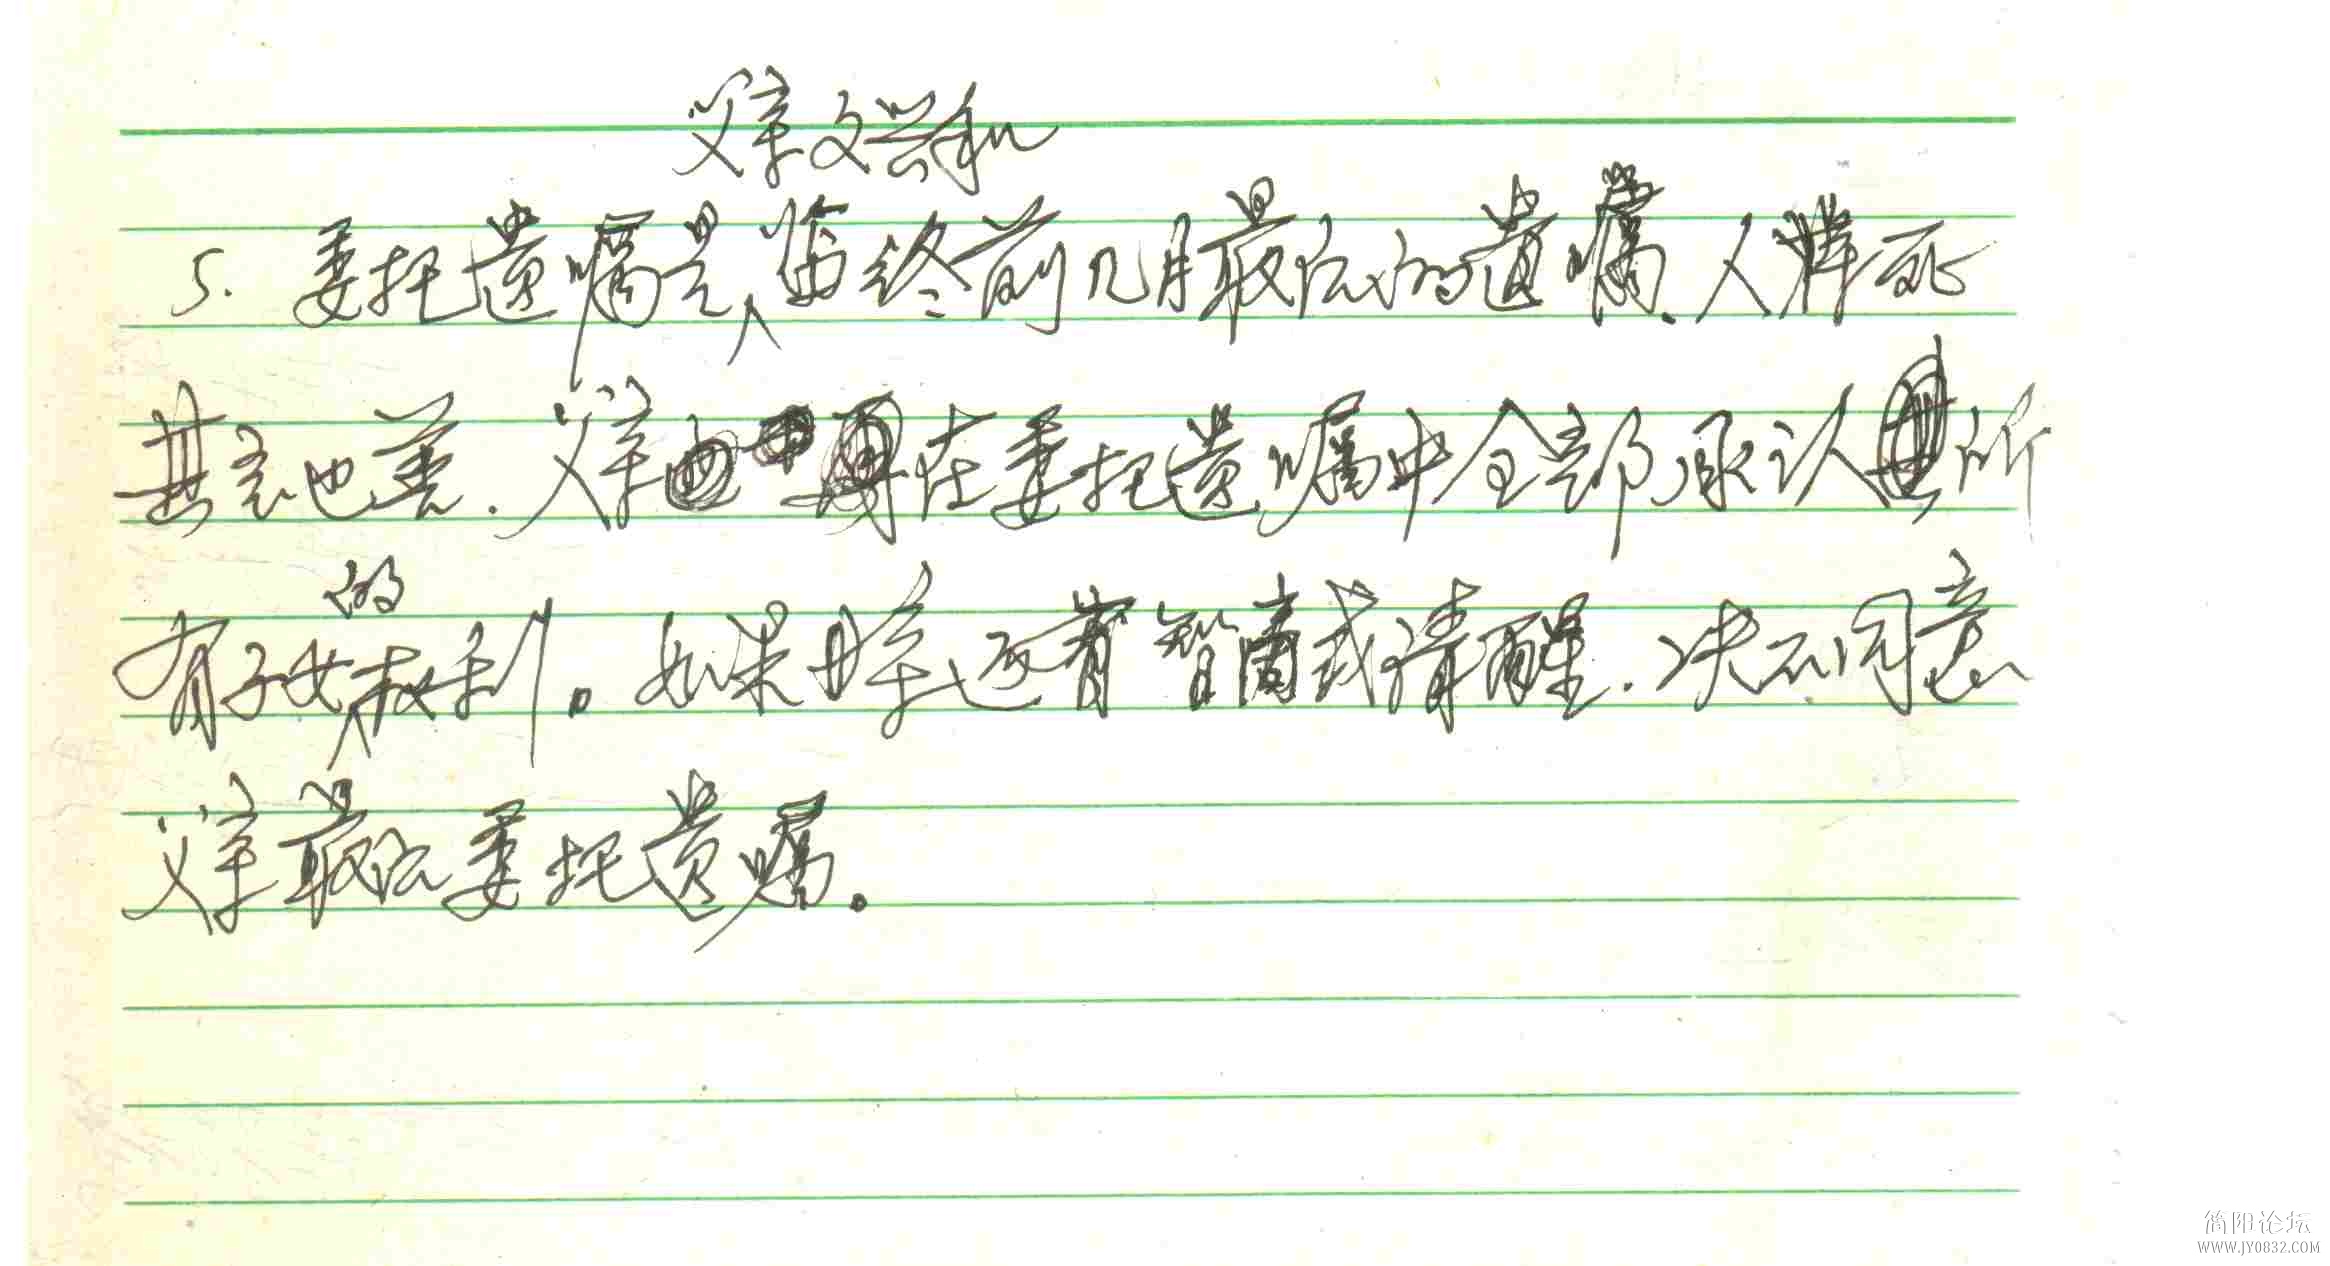 父亲文兴和
5. 委托遗嘱是临终前几月最后的遗嘱、人将死
其言也善.父亲在委托遗嘱中全部承认所
的
有子女权利。如果母亲还有智商或清醒.决不同意
父亲最后委托遗嘱。
简阳论坛
WWW.JY0832.COM